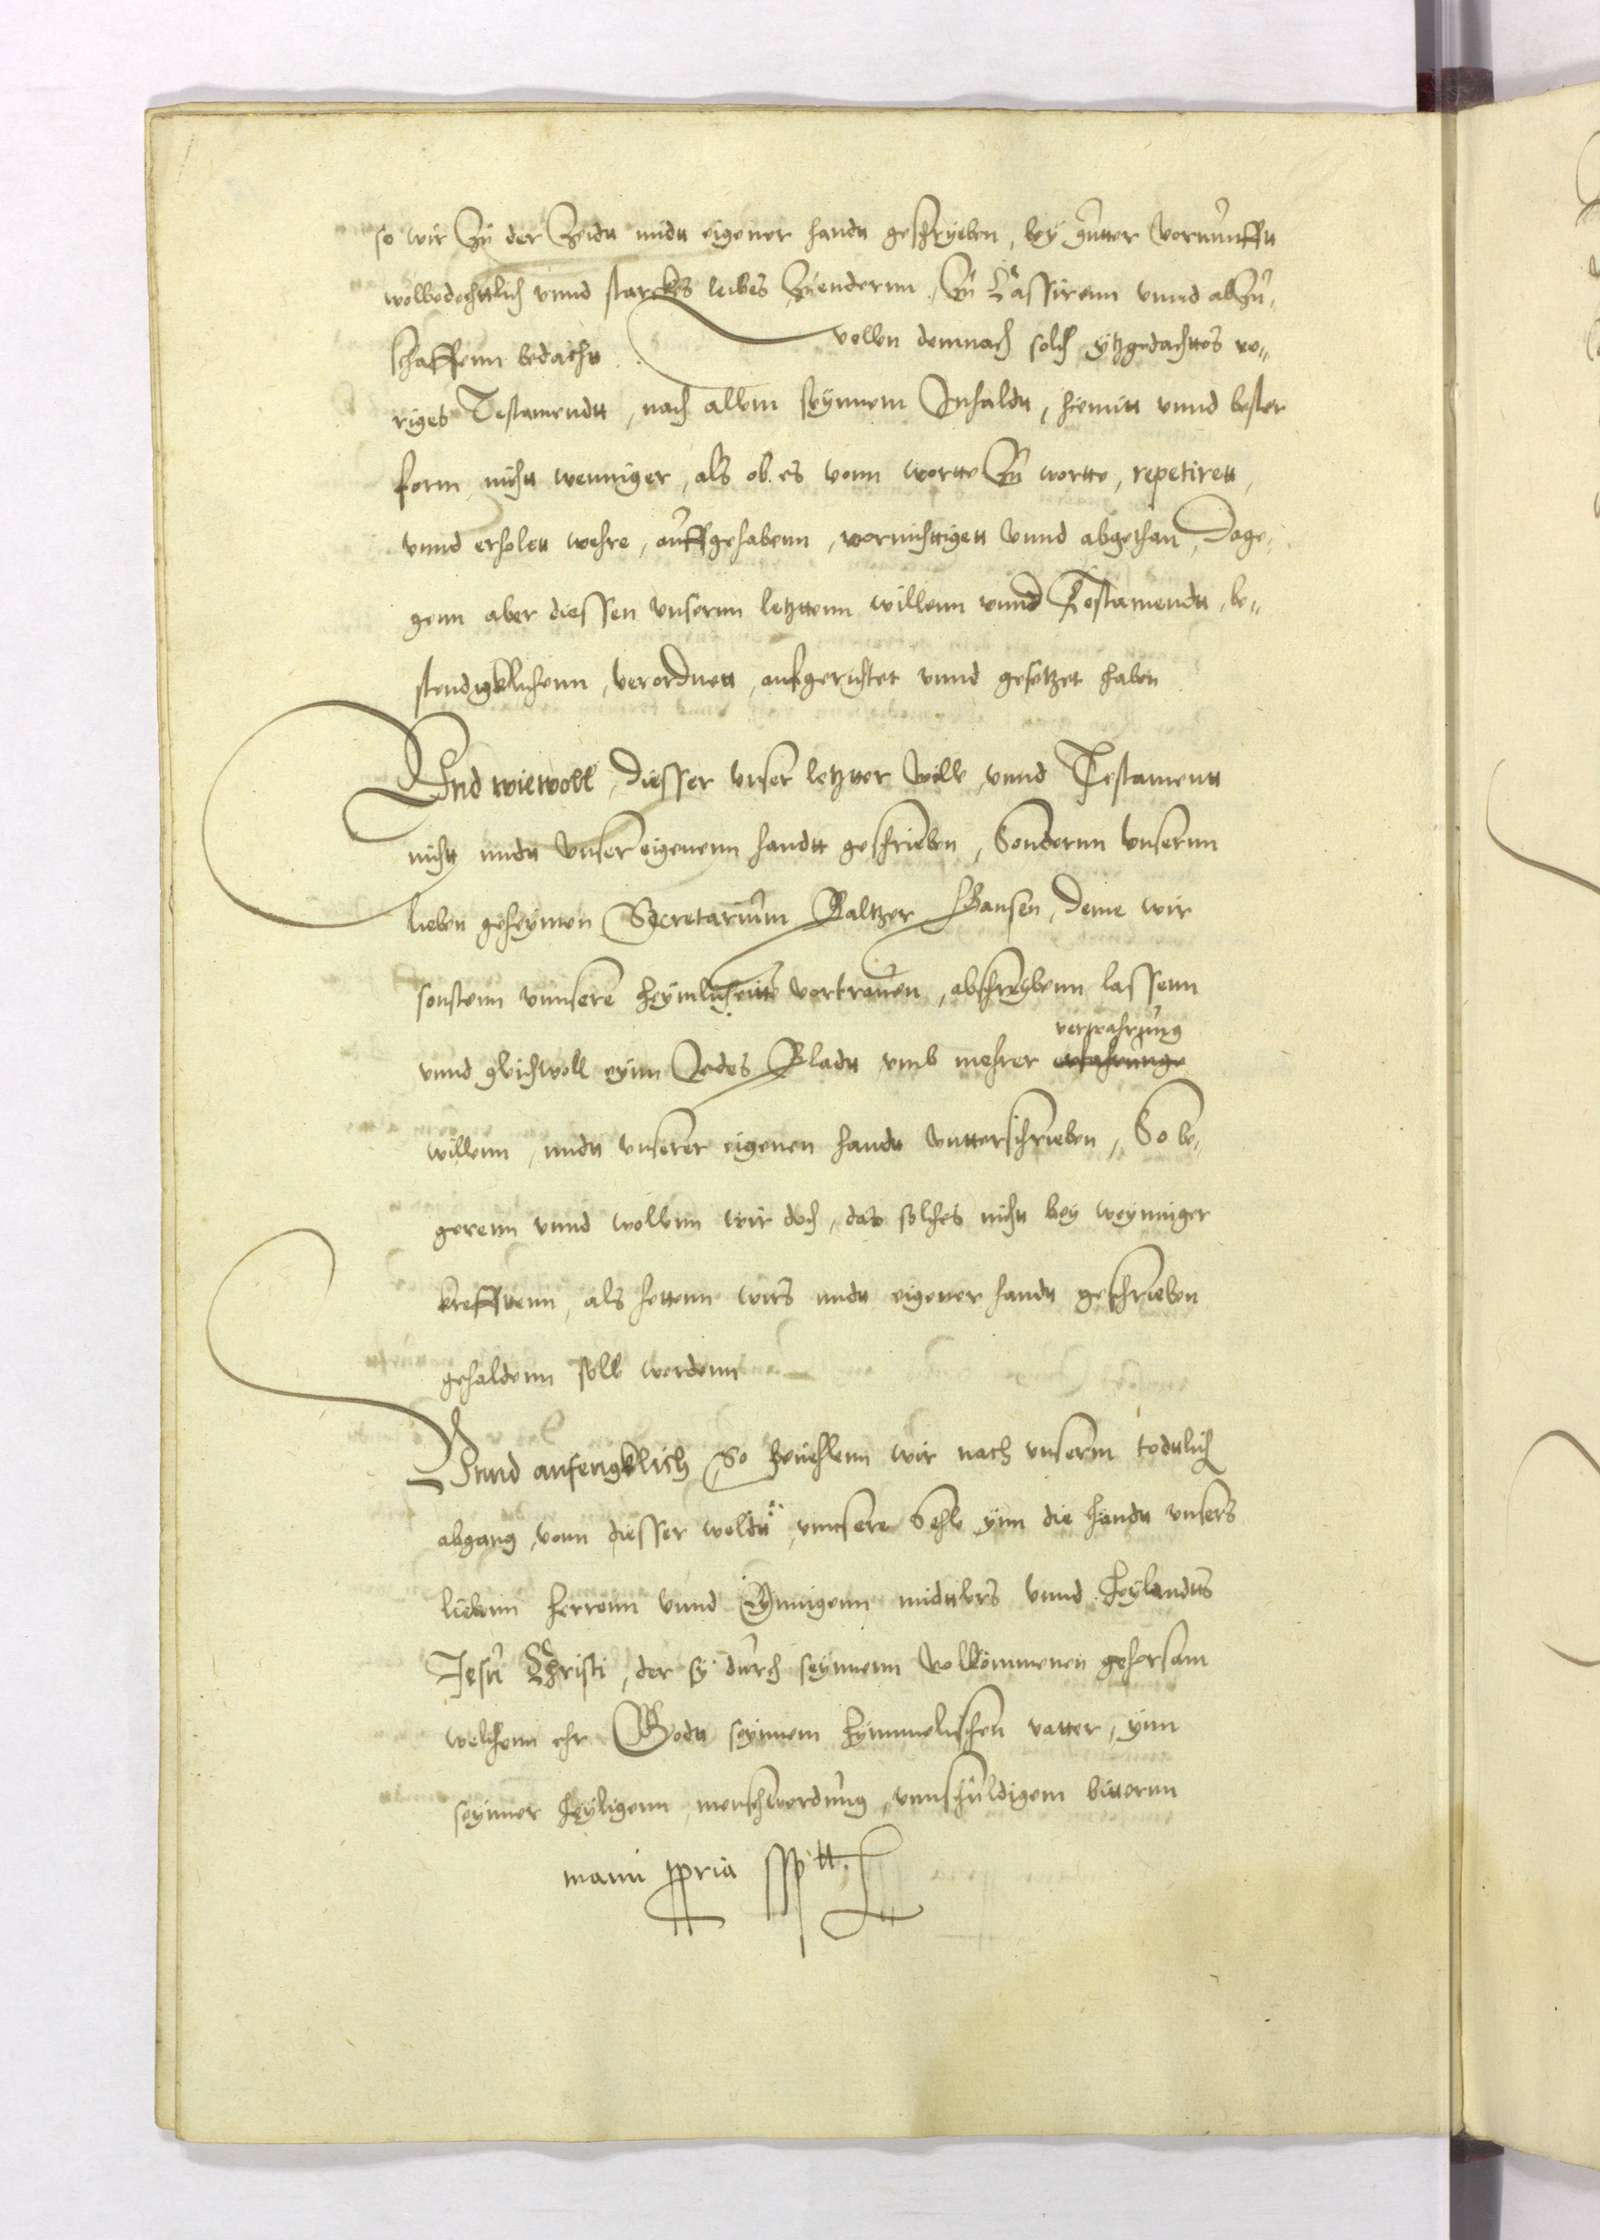 so wir Zu der Zeidtt midtt eigener handtt geschryeben, bey gutter vornunfftt
wolbedechttlich vnnd starckes leibes Zuendernn, Zu Cassirenn vnnd abzu,
schaffenn bedachtt. wollen demnach solch ytzgedachttes vo,,
riges Testamendtt, nach allem seynnem Inhaldtt, hiemitt vnnd bester
form, nichtt wenniger, als ob es vonn wortte Zu wortte, repetirett,
vnnd erholett wehre, auffgehabenn, vornichttigett vnnd abgethan, Dage,
genn aber diessen vnsernn letzttenn willenn vnnd Testamendtt, be,,
stendigklichenn, verordnett, aufgerichtet vnnd gesetzet haben
Vnd wiewoll, diesser vnser letztter Will, vnnd Testamentt
nichtt midtt vnser eigenenn handtt geschrieben, Sondernn vnsernn
lieben geheymen Secretarium Baltzer Gansen, deme wir
sonstenn vnnsere heymlicheitt vortrauen, abschreybenn lassenn
vnnd gleichwoll eynn Jedes Bladtt vmb mehrer verwahrung erfahrunge
willenn, midtt vnserer eigenen handtt vntterschrieben, So be,
gerenn vnnd wollenn wir doch, das solches nichtt bey weynniger
krefftenn, als hettenn wirs midtt eigener handtt geschrieben
gehaldenn soll werdenn
Vnnd anfengklich, So beuehlenn wir nach vnserm todttlich
abgang, vonn diesser weldtt, vnnsere Sehle ynn die handtt vnsers
liebenn herrenn vnnd Eynnigenn midttlers vnnd heylandtts
Jesu Christi, der sy durch seynnenn volkommenen gehorsam
welchenn ehr Godtt seynnem hymmelischen vatter, ynn
seynner heyligenn menschwerdung, vnnschuldigem bitternn
manu ppria sspttt